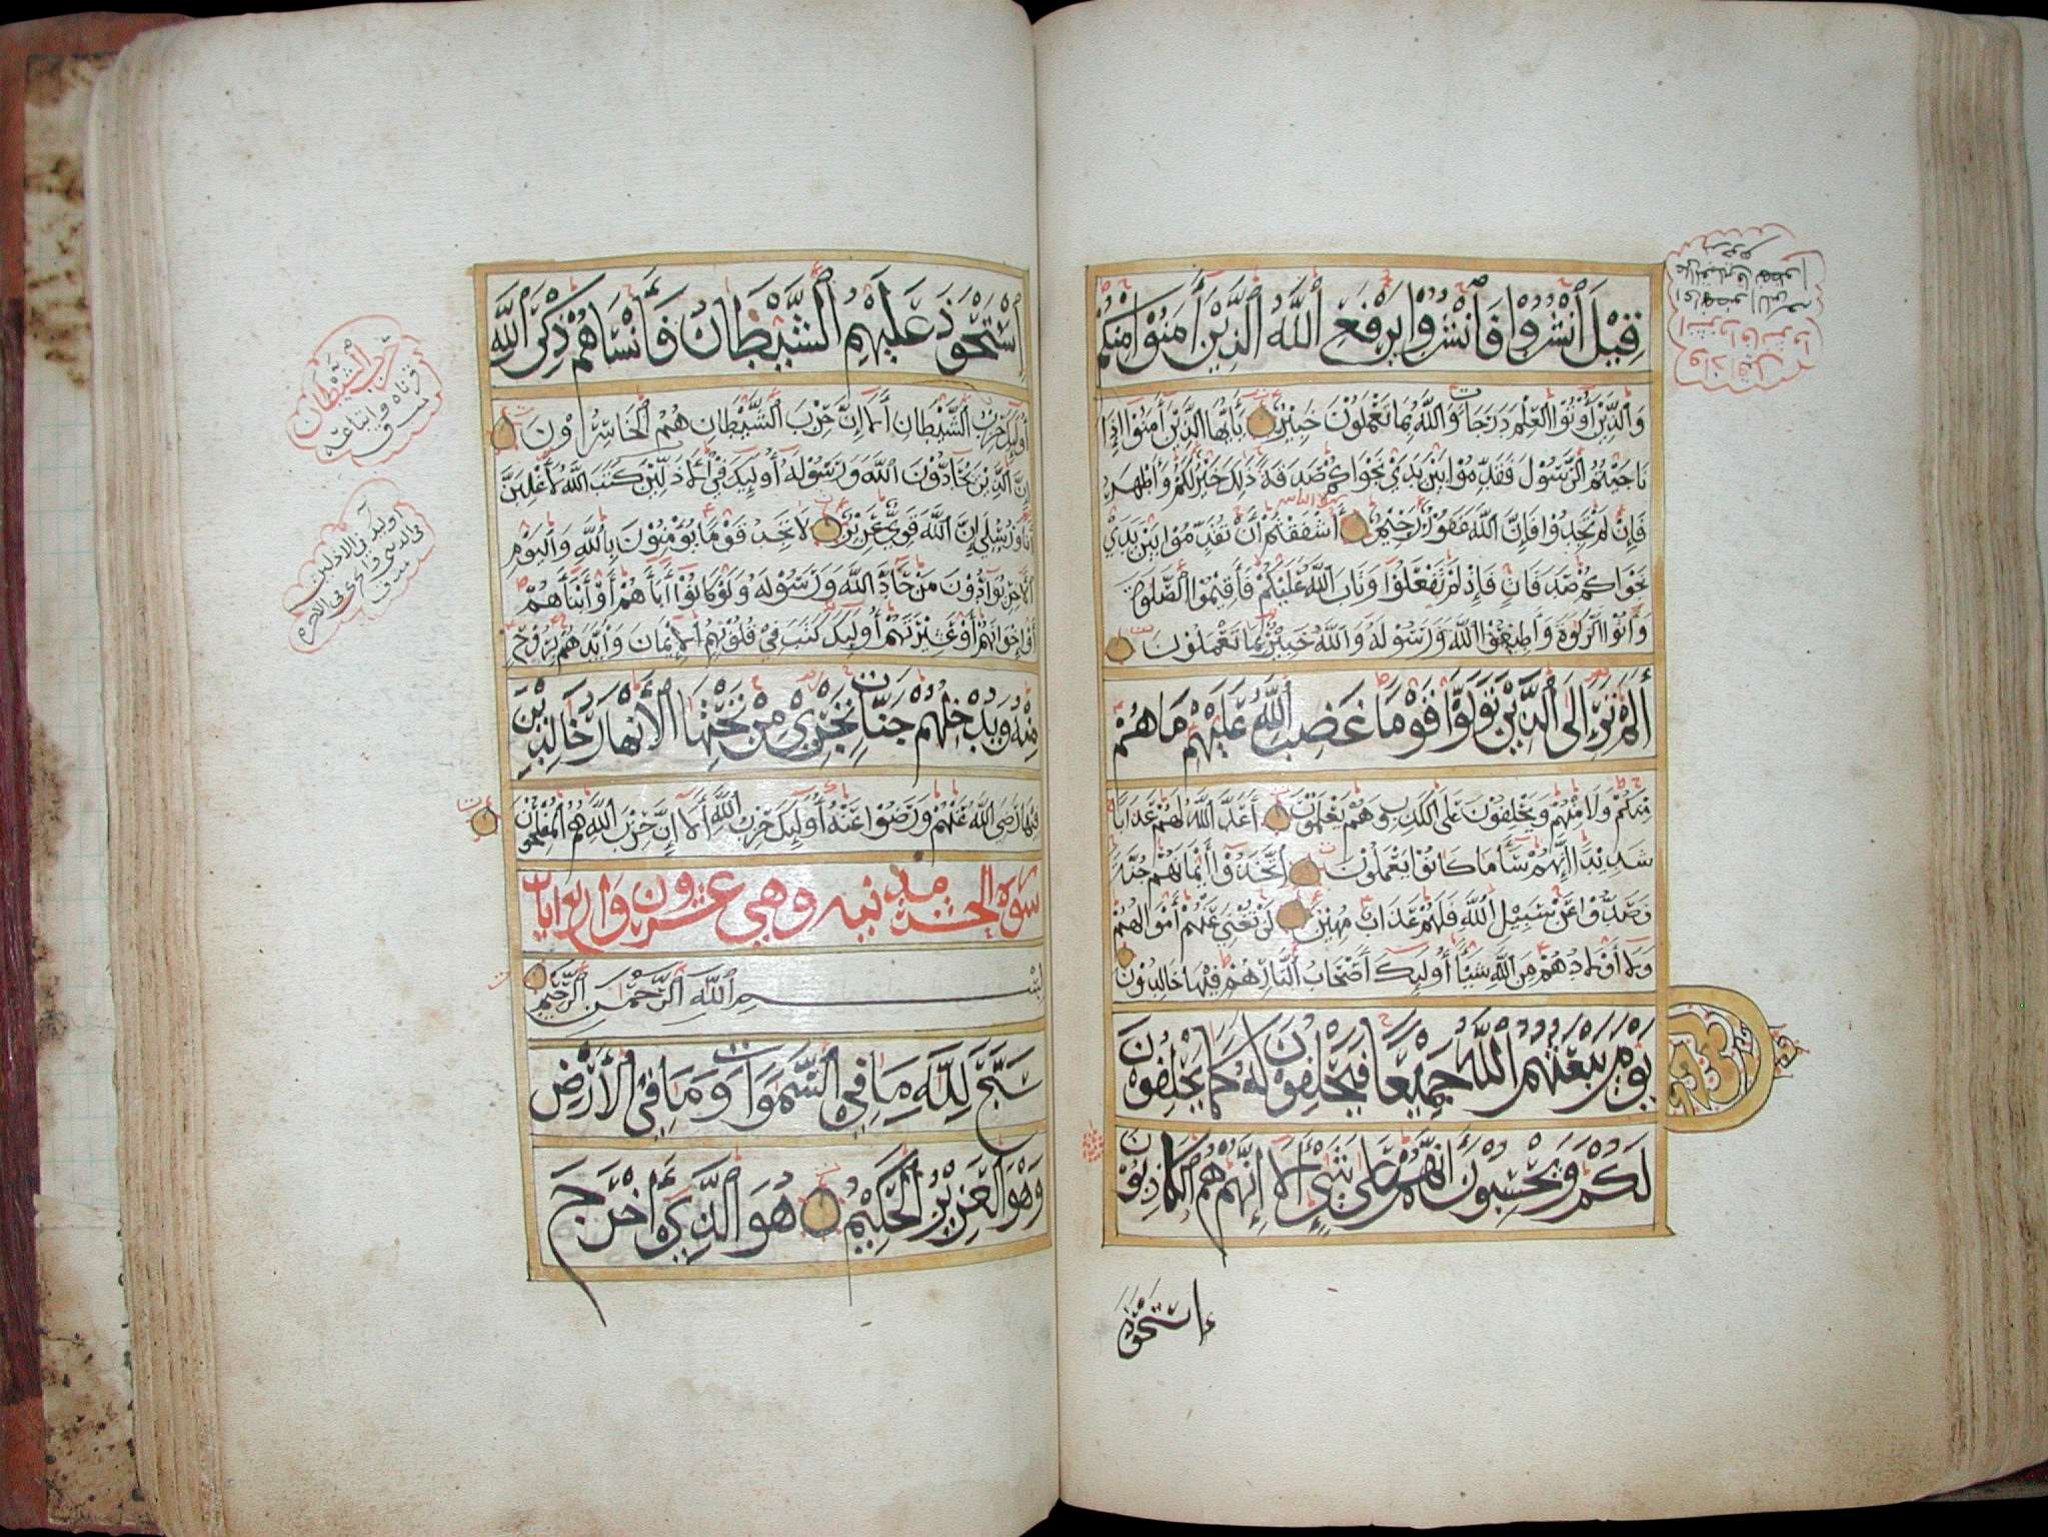 قِيْلَ ٱنْشُزُوْا فَٱنْشُزُوْا يَرْفَعِ ٱللَّهُ ٱلَّذِيْنَ أٰمَنُوْا مِنْكُمْ
وَالَّذِيْنَ أُوْتُوا الْعِلْمَ دَرَجَاتٍ وَاللَّهُ بِمَا تَعْمَلُوْنَ خَبِيْرٌ يَأَيُّهَا الَّذِيْنَ أٰمَنُوْا إِذَا
نَاجَيْتُمُ الرَّسُوْلَ فَقَدِّمُوْا بَيْنَ يَدَيْ نَجْوَاكُمْ صَدَقَةً ذَلِكَ خَيْرٌ لَكُمْ وَأَطْهَرُ
فَإِنْ لَمْ تَجِدُوْا فَإِنَّ اللَّهَ غَفُوْرٌ رَحِيْمٌ أَأَشْفَقْتُمْ أَنْ تُقَدِّمُوْا بَيْنَ يَدَيْ
نَجْوَاكُمْ صَدَقَاتٍ فَإِذْ لَمْ تَفْعَلُوْا وَتَابَ اللَّهُ عَلَيْكُمْ فَأَقِيْمُوا الصَّلٰوةَ
وَأٰتُوا الزَّكٰوةَ وَأَطِيْعُوْا اللَّهَ وَرَسُوْلَهُ وَاللَّهُ خَبِيْرٌ بِمَا تَعْمَلُوْنَ
أَلَمْ تَرَ إِلَى الَّذِيْنَ تَوَلَّوْا قَوْمًا غَضِبَ اللَّهُ عَلَيْهِمْ مَا هُمْ
مِنْكُمْ وَلَا مِنْهُمْ وَيَحْلِفُوْنَ عَلَى الْكَذِبِ وَهُمْ يَعْلَمُوْنَ أَعَدَّ اللَّهُ لَهُمْ عَذَابًا
شَدِيْدًا إِنَّهُمْ سَأَ مَا كَانُوْا يَعْمَلُوْنَ اتَّخَذُوْا أَيْمَانَهُمْ جُنَّةً
فَصَدُّوْا عَنْ سَبِيْلِ اللَّهِ فَلَهُمْ عَذَابٌ مُهِيْنٌ لَنْ تُغْنِيَ عَنْهُمْ أَمْوَالُهُمْ
وَلَا أَوْلَادُهُمْ مِنَ اللَّهِ شَيْأً أُولَئِكَ أَصْحَابُ النَّارِ هُمْ فِيْهَا خَالِدُوْنَ
يَوْمَ يَبْعَثُهُمُ اللَّهُ جَمِيْعًا فَيَحْلِفُوْنَ لَهُ كَمَا يَحْلِفُوْنَ
لَكُمْ وَيَحْسِبُوْنَ أَنَّهُمْ عَلَى شَيْءٍ أَلَا إِنَّهُمْ هُمُ الْكَاذِبُوْنَ
إِسْتَحْوَذَ
ٱسْتَحْوَذَ عَلَيْهِمُ ٱلشَّيْطَانُ فَأَنْسَاهُمْ ذِكْرَ ٱللَّهِ
أُولَئِكَ حِزْبُ الشَّيْطَانِ أَلَا إِنَّ حِزْبَ الشَّيْطَانِ هُمُ الْخَاسِرُوْنَ
إِنَّ الَّذِيْنَ يُحَادُّوْنَ اللَّهَ وَرَسُوْلَهُ أُولَئِكَ فِي الْأَذَلِّيْنَ كَتَبَ اللَّهُ لَأَغْلِبَنَّ
أَنَا وَرُسُلِي إِنَّ اللَّهَ قَوِيٌّ عَزِيْزٌ لَا تَجِدُ قَوْمًا يُؤْمِنُوْنَ بِاللَّهِ وَالْيَوْمِ
الْأٰخِرِ يُوَآدُّوْنَ مَنْ حَآدَّ اللَّهَ وَرَسُوْلَهُ وَلَوْ كَانُوْا أٰبَآءَهُمْ أَوْ أَبْنَآءَهُمْ
أَوْ إِخْوَانَهُمْ أَوْ عَشِيْرَتَهُمْ أُولَئِكَ كَتَبَ فِيْ قُلُوْبِهِمُ الْإِيْمَانَ وَأَيَّدَهُمْ بِرُوْحٍ
مِنْهُ وَيُدْخِلُهُمْ جَنَّاتٍ تَجْرِيْ مِنْ تَحْتِهَا الْأَنْهَارُ خَالِدِيْنَ
فِيْهَا رَضِيَ اللَّهُ عَنْهُمْ وَرَضُوْا عَنْهُ أُولَئِكَ حِزْبُ اللَّهِ أَلَا إِنَّ حِزْبَ اللَّهِ هُمُ الْمُفْلِحُوْنَ
سورة الحشر مدنيه وهي عشرون واربع ايات
بِسْمِ اللَّهِ الرَّحْمٰنِ الرَّحِيْمِ
سَبَّحَ لِلَّهِ مَا فِي السَّمَوَاتِ وَمَا فِي الْأَرْضِ
وَهُوَ الْعَزِيْزُ الْحَكِيْمُ هُوَ الَّذِيْ أَخْرَجَ
حزب الشيطان
قرناه واتباعه
اوليك في الاذلين